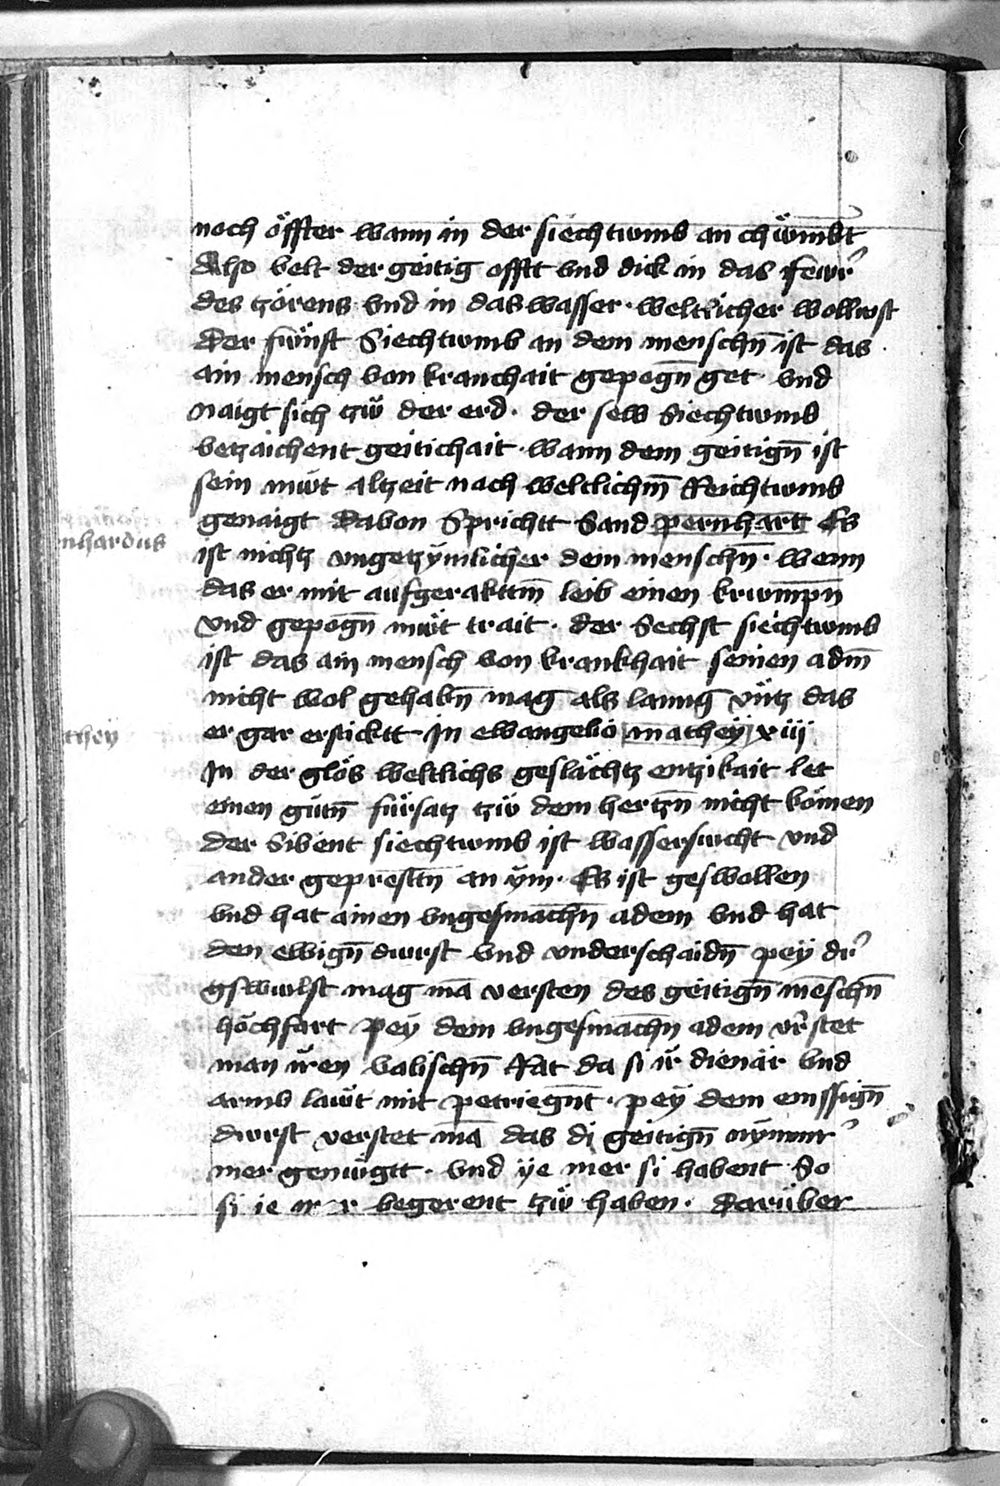 noch öffter wann in der siechtumb an chümbt
Also velt der geitig offtt vnd dick in das fewr
des tzörens vnd in das wasser · weltlicher wollust
Der fünft Siechtumb an dem menschn̄ ist das
ain mensch von kranchait gepogn̄ get vnd
naigt sich tzw̎ der erd · der selb Siechtumb
betzaichent geitichait · wann dem geitign̄ ist
sein müt altzeit nach weltlichm̄ Reichtumb
genaigt Dauon Sprichtt Sand pernhart Es
nhardus
ist nichtz vngetzymlicher dem menschn̄ · wenn
das er mit aufgerakttm̄ leib einen krumpn̄
vnd gepogn̄ müt trait · der Sechst siechtumb
ist das ain mensch von krankhait seinen adm̄
nicht wol gehabn̄ mag als lanng vntz das
er gar ersticktt · In ewangelio mathey xiij
they
In der glös weltlichs geslächtz entzikait let
einen gutn̄ fürsatz tzw̎ dem hertzn̄ nicht kömen
der Sibent siechtumb ist wassersucht vnd
ander geprestn̄ an ym · Es ist geswollen
vnd hat ainen vngesmachn̄ adem vnd hat
den ewign̄ durst vnd vnderschaidn̄ pey dr
gswulst mag mā versten des geitign̄ menschn̄
höchfart pey dem vngesmachn̄ adem vrstet
man iren valischn̄ Rat da si ir dienär vnd
armb lawt mit petriegn̄t · pey dem emssign̄
durst verstet mā das di geitign̄ nymmr
mer genügtt · vnd ye mer si habent So
si ie begerent tzw̎ haben · Darüber